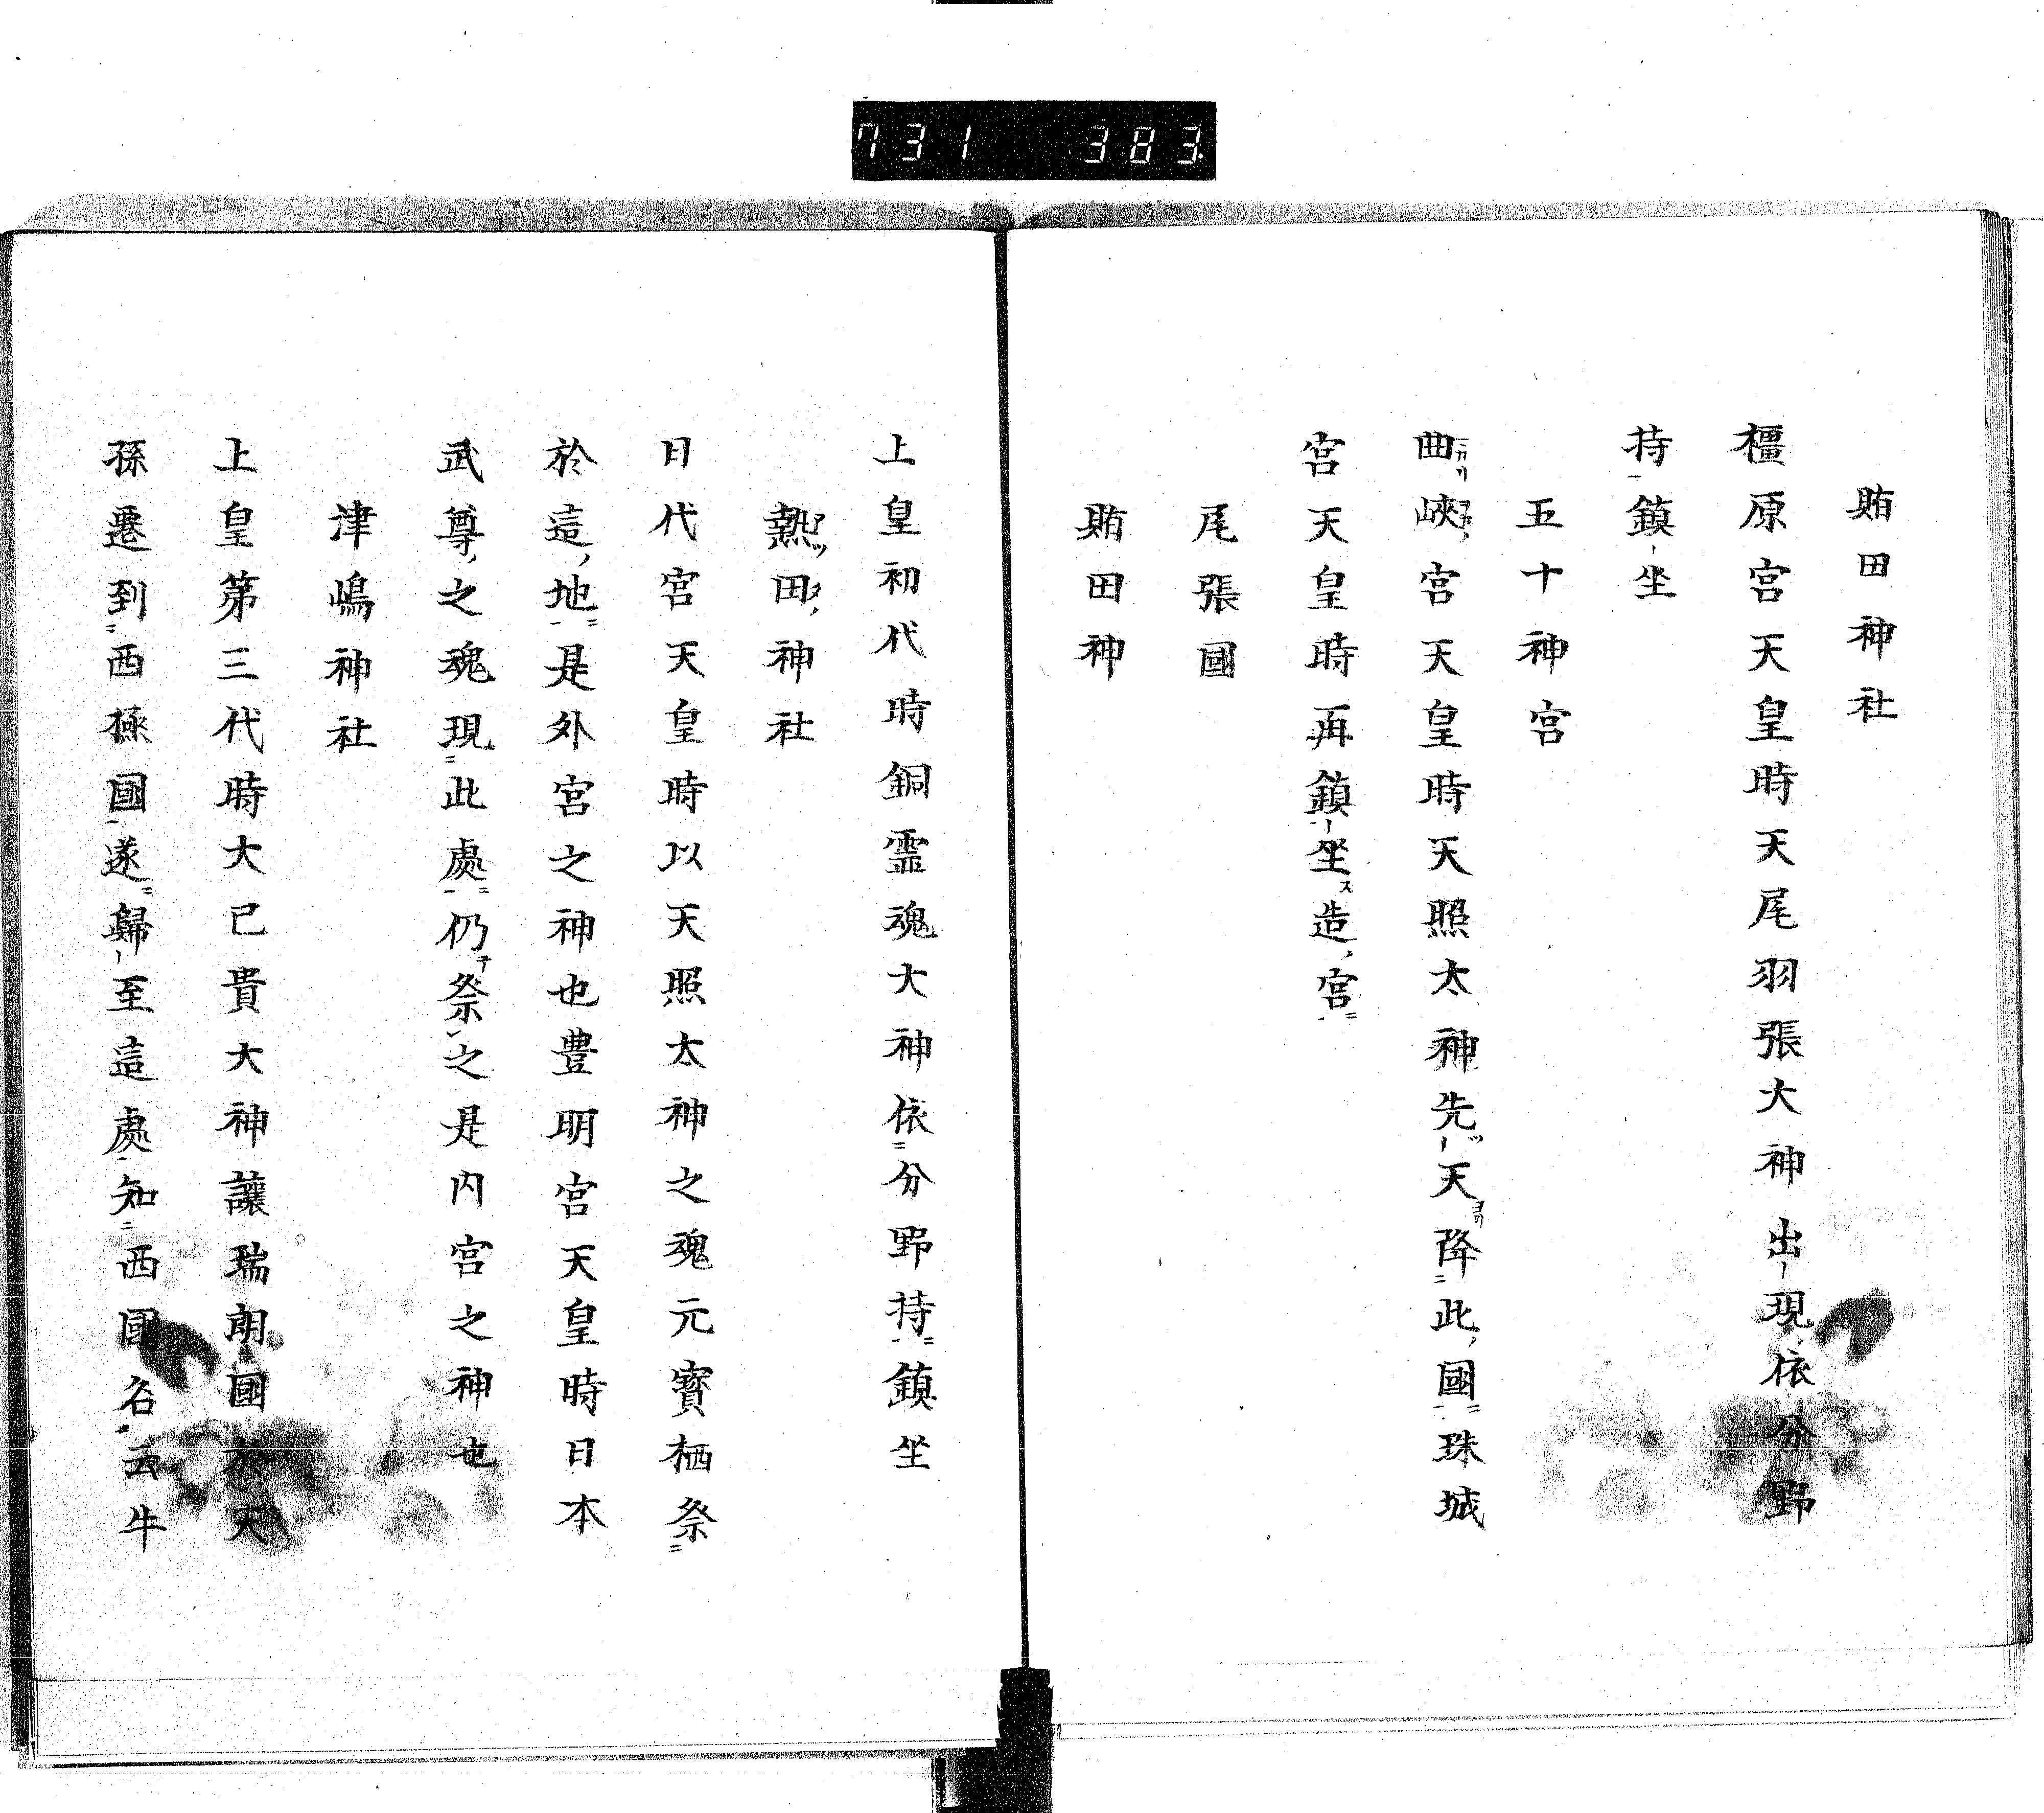 731 383
賄田神社
橿原宮天皇時天尾羽張大神出現依分野
持鎮坐
五十神宮
曲峽宮天皇時天照太神先天降此國珠城
宮天皇時再鎮坐造宮
尾張國
賄田神
上皇初代時銅霊魂大神依分野持鎮坐
熱田神社
日代宮天皇時以天照太神之魂元寳栖祭
於這地是外宮之神也豊明宮天皇時日本
武尊之魂現此處仍祭之是内宮之神也
津嶋神社
上皇第三代時大己貴大神讓瑞朗國於天
孫遷到西極國遂歸至這處知西國名云牛